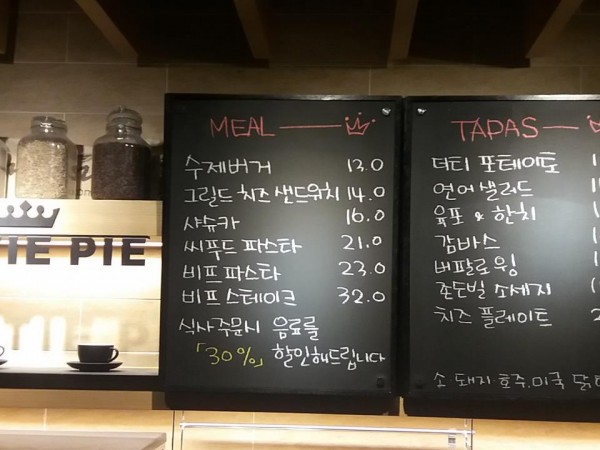 IE PIE
MEAL
수제버거 13.0
그릴드 치즈 샌드위치 14.0
샤슈카 16.0
씨푸드 파스타 21.0
비프 파스타 23.0
비프 스테이크 32.0
식사 주문시 음료를
「30%」 할인해드립니다
TAPAS
더티 포테이토
연어 샐러드
육포 & 한치
감바스
버팔로 윙
존슨빌 소세지
치즈 플레이트
소, 돼지·호주, 미국